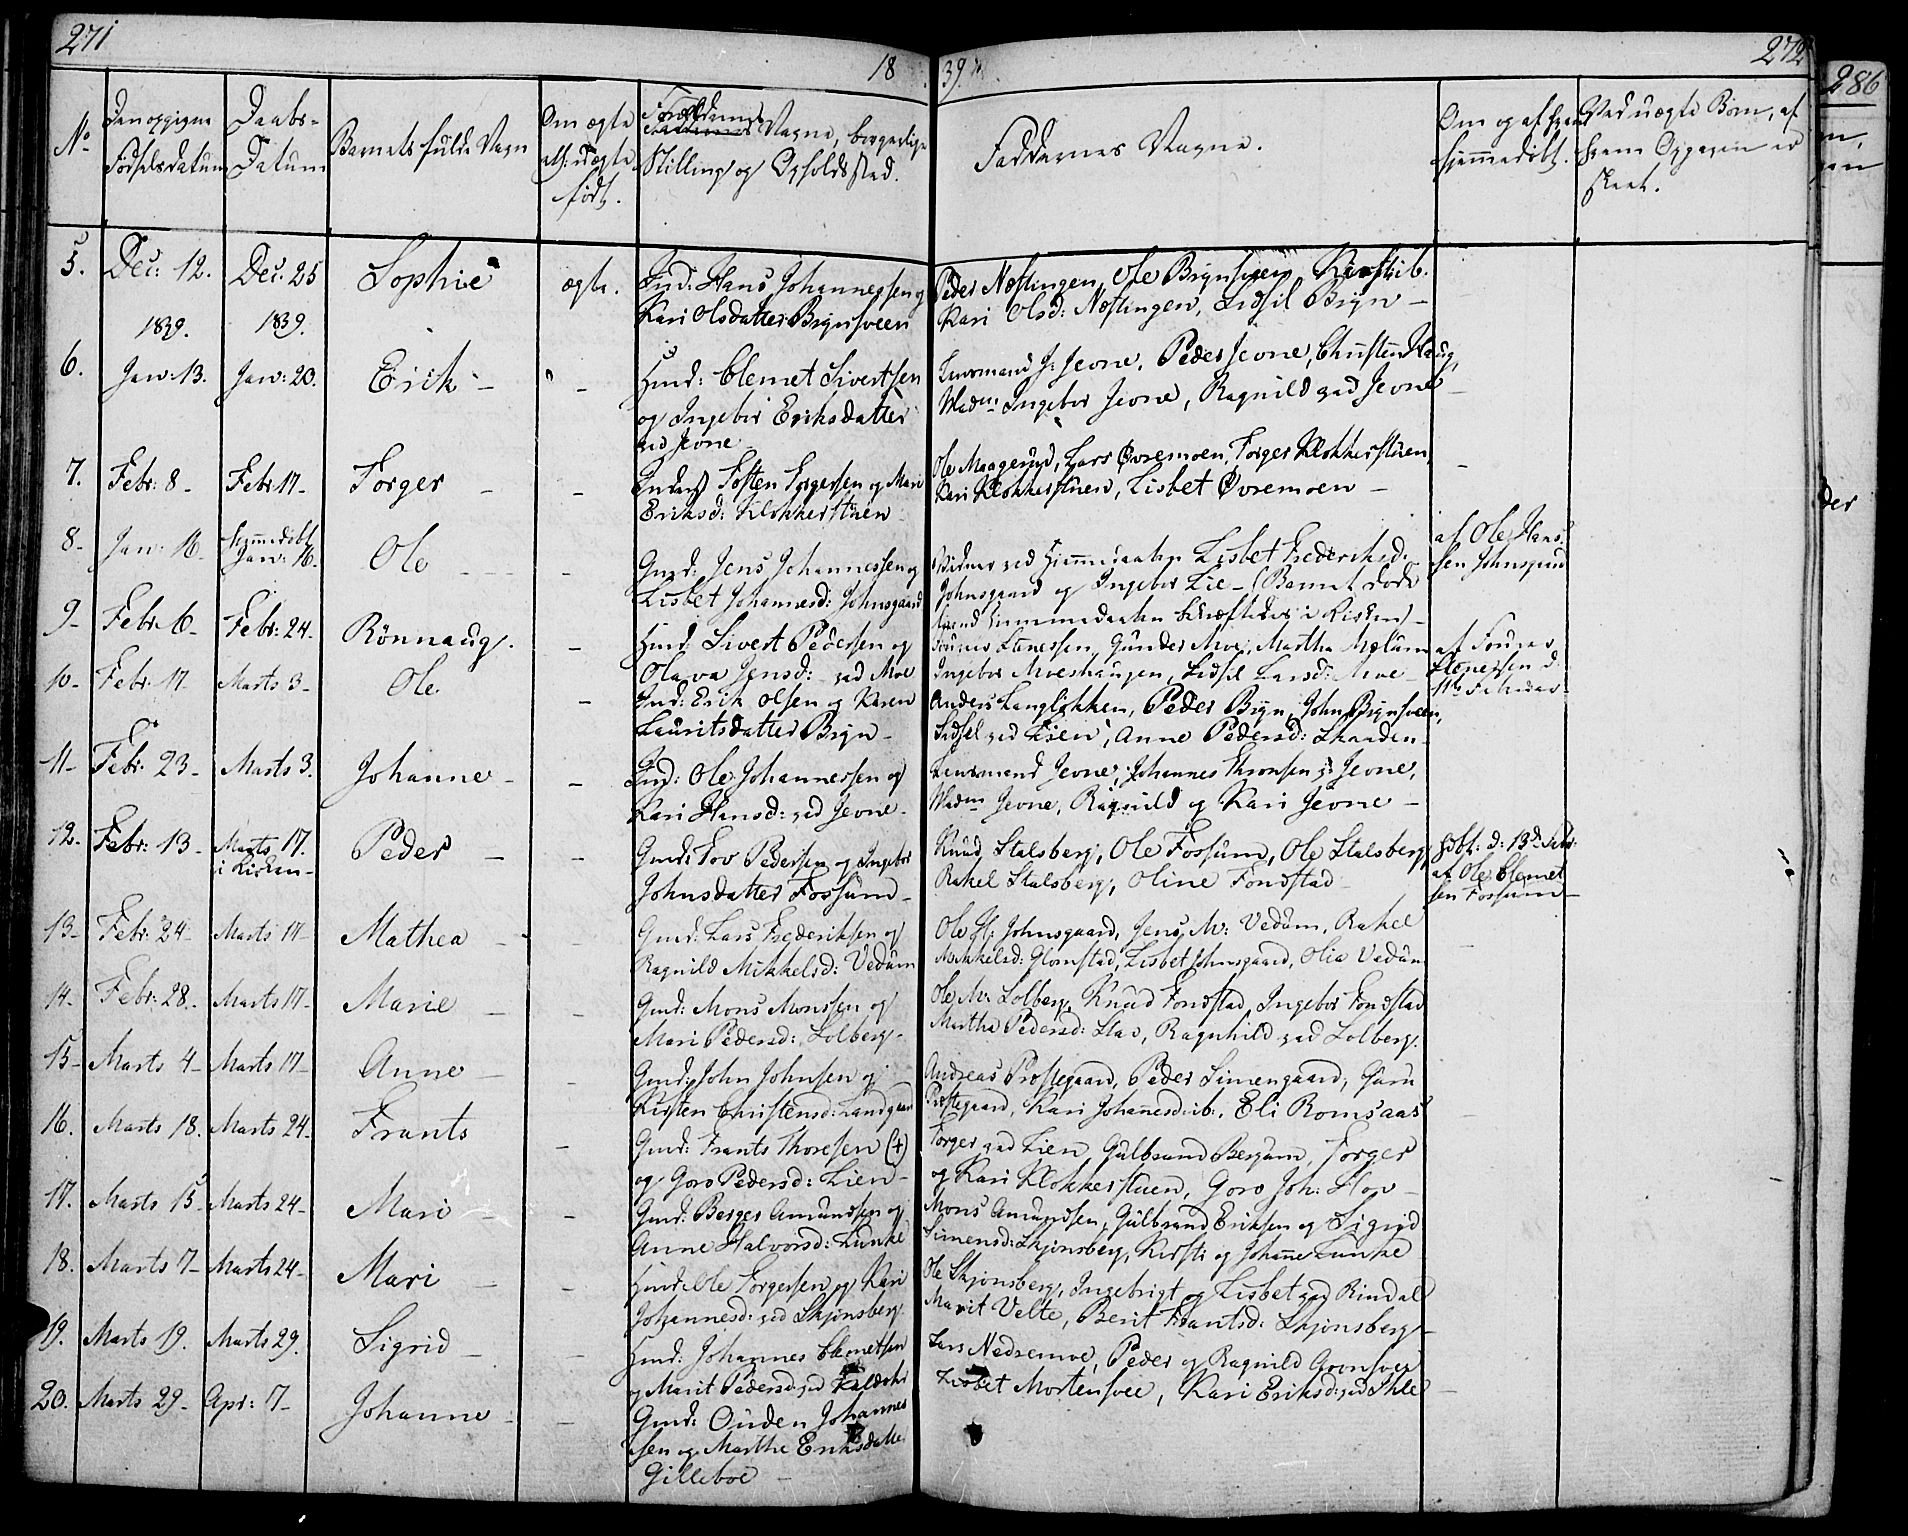 271
18
39.
272
286
No
Den opgivne
Fødselsdatum
Daabs-
Datum
Barnets fulde Navn
Om ægte
ell: uægte
født.
Forældrenes
Navne, borgerlige
Stilling og Opholdssted.
Faddernes Navne.
Om og af hvem
hjemmedøbt.
Ved uægte Børn, af
hvem Opgaven er
skeet.
5.
Dec: 12.
Dec. 25
Sophie
ægte.
Ind: Hans Johannessen og
Kari Olsdatter Brynsveen
Peder Nostingen, Ole Brynsveen, Kirsti ib.
Kari Olsd: Nostingen, Sidsil Bryn —
1839.
1839.
6.
Jan: 13.
Jan: 20.
Erik —
Hmd: Clemet Sivertsen
og Ingebor Eriksdatter
ved Jevne
Lensmand J: Jevne, Peder Jevne, Christen Haug,
Madm Ingebor Jevne, Ragnild ved Jevne
7.
Febr: 8 -
Febr: 17 -
Torger —
Inderst Tosten Torgersen og Mari
Eriksd: Klokkerstuen
Ole Maagerud, Lars Øvremoen, Torger Klokkerstuen,
Kari Klokkerstuen, Lisbet Øvremoen —
8 -
Jan: 16 -
hjemmedøbt
Jan: 16 -
Ole —
Gmd: Jens Johannessen og
Lisbet Johannesd: Johnsgaard
Vidner ved Hjemmedaaben Lisbet Frederiksd.
Johnsgaard og Ingebor Lie — (Barnet døde
førend Hjemmedaaben bekræftedes i Kirken) —
af Ole Hans-
sen Johnsgaard
9 -
Febr: 6 -
Febr: 24 -
Rönnaug.
Hmd: Sivert Pedersen og
Olava Jensd: ved Moe
Gunder Moe, Martha Melum
Ingebor Moeshaugen, Sidsil Larsd: Moe
10 -
Febr: 17
Marts 3 -
Ole
Ind: Erik Olsen og Karen
Lauritsdatter Bryn —
Anders Langløkken, Peder Bryn, John Brynsveen,
Sidsel ved Lien, Anne Pedersd: Skaaden —
11 -
Febr. 23 -
Marts 3.
Johanne —
Ind: Ole Johannessen og
Kari Hansd: ved Jevne —
Lensmand Jevne, Johannes Thronsen ved Jevne,
Madm Jevne, Ragnild og Kari Jevne —
12.
Febr: 13 -
Marts 17.
i Kirken —
Peder —
Gmd: Tov Pedersen og Ingebor
Johnsdatter Fossum —
Knud Stalsberg, Ole Fossum, Ole Stalsberg,
Rakel Stalsberg, Oline Fonstad —
hdbt: d: 13de Febr:
af Ole Clemet
sen Fossum —
13 -
Febr: 24 -
Marts 17 -
Mathea —
Gmd: Lars Frederiksen og
Ragnild Mikkelsd: Vedum
Ole H: Johnsgaard, Jens M: Vedum, Rakel
Mikkelsd: Glomstad, Lisbet Johnsgaard, Olia Vedum
14 -
Febr: 28 -
Marts 17 -
Marie —
Gmd: Mons Monssen og
Mari Pedersd: Solberg —
Ole M: Solberg, Knud Fonstad, Ingebor Fonstad
Martha Pedersd: Stav, Ragnhild ved Solberg.
15 -
Marts 4 -
Marts 17 -
Anne —
Gmd: John Johnsen og
Kirsten Christensd: Landgaard
Andreas Prostegaard, Peder Simengaard, Guru
Prostegaard, Kari Johannesd: ib., Eli Romsaas
16.
Marts 18.
Marts 24 -
Frants
Gmd: Frants Thoresen (+)
og Goro Pedersd: Lien —
Torger ved Lien, Gulbrand Bergum, Torger
og Kari Klokkerstuen, Goro Joh: Hov —
17.
Marts 15 -
Marts 24 -
Mari —
Gmd: Berger Amundsen og
Anne Halvorsd: Lunke
Mons Amundsen, Gulbrand Eriksen og Sigrid
Simensd: Skjonsberg, Kirsti og Johanne Lunke
18.
Marts 7 -
Marts 24 -
Mari —
Hmd: Ole Torgersen og Kari
Johannesd: ved Skjonsberg
Ole Skjonsberg, Ingebrigt og Lisbet ved Rindal
Marit Velte, Berit Frantsd: Skjonsberg —
19.
Marts 19.
Marts 29.
Sigrid —
Hmd: Johannes Clemetsen
og Marit Pedersd: ved
Lars Nedremoe, Peder og Ragnild Aronsveen
Lisbet Mortensvee, Kari Eriksd: ved Ihle
20.
Marts 29 -
Apr: 7 -
Johanne —
Gmd: Ouden Johannes
sen og Marthe Eriksdatter
Gilleboe —